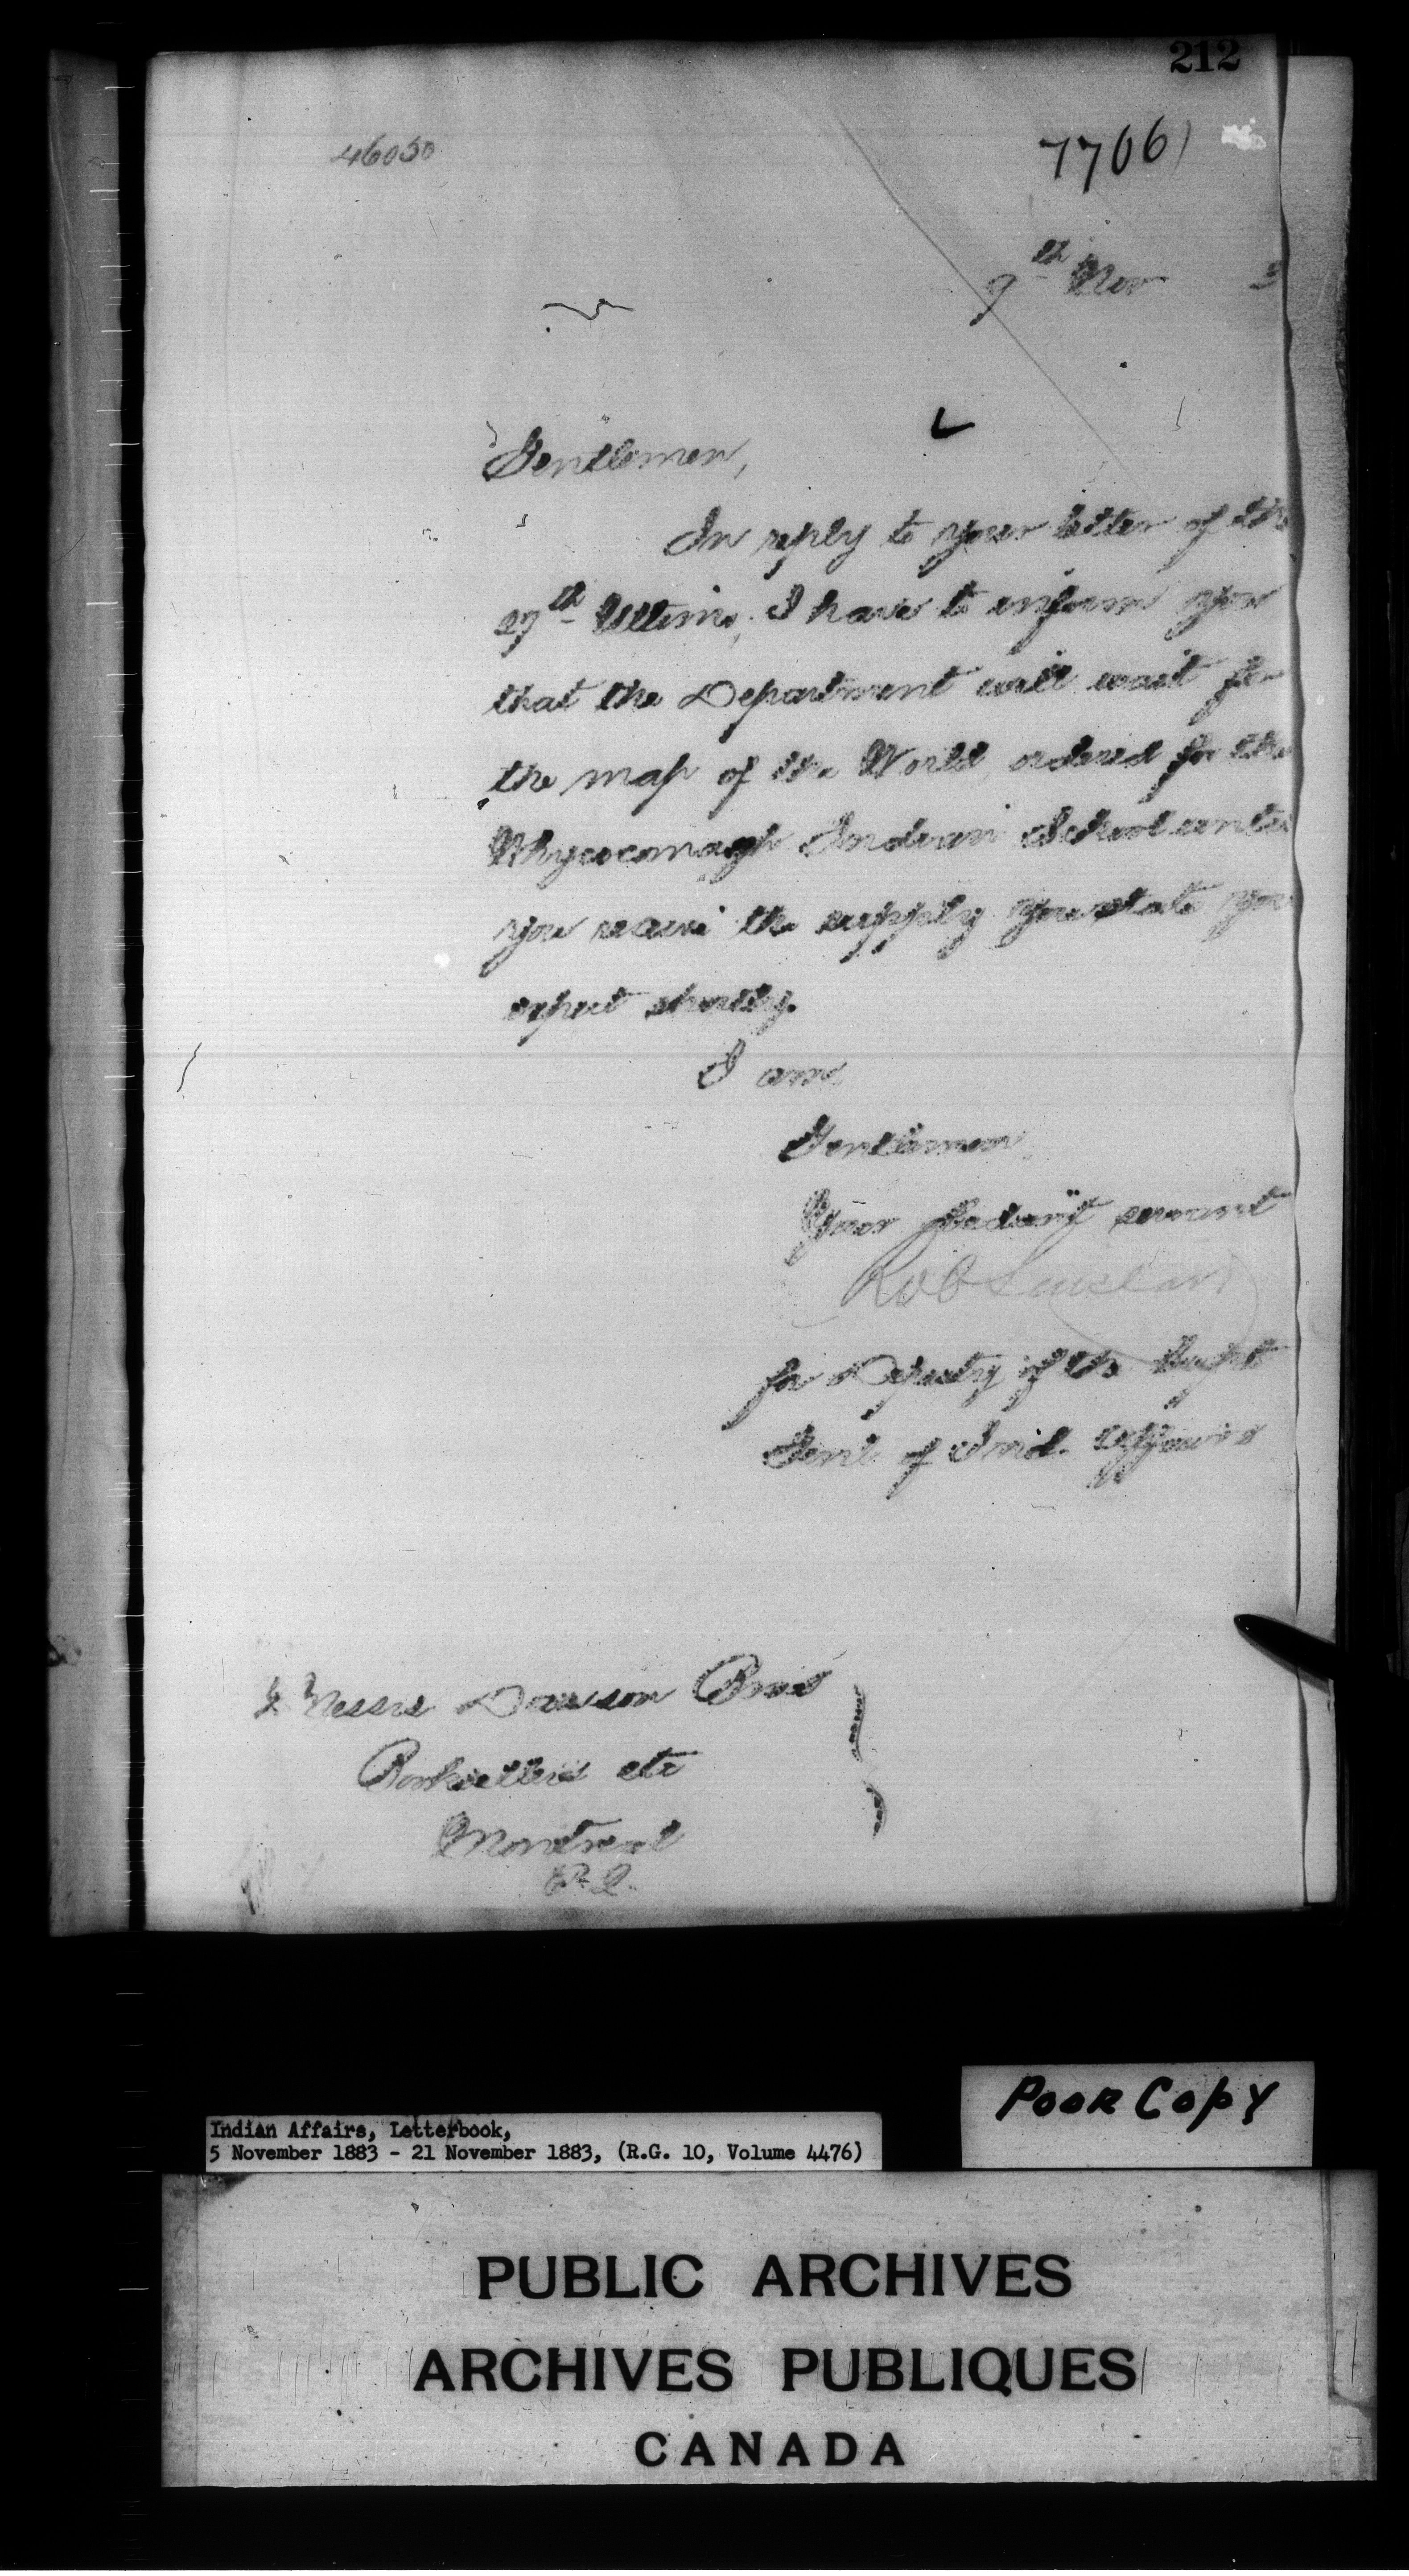 212
46050
7706
9th Nov 3
Gentlemen,
In reply to your letter of the
27th Ultimo, I have to inform you
that the Department will wait for
the map of the World, ordered for the
Whycocomagh Indian School until
you receive the supply you state you
expect shortly.
I am,
Gentlemen,
Your obedient servant
Sinclair
for Deputy of the Supt
Genl. of Ind. Affairs
Messrs Dawson Bros
Booksellers etc
Montreal
P.Q.
POOR COPY
Indian Affairs, Letterbook,
5 November 1883 - 21 November 1883, (R.G. 10, Volume 4476)
PUBLIC ARCHIVES
ARCHIVES PUBLIQUES
CANADA